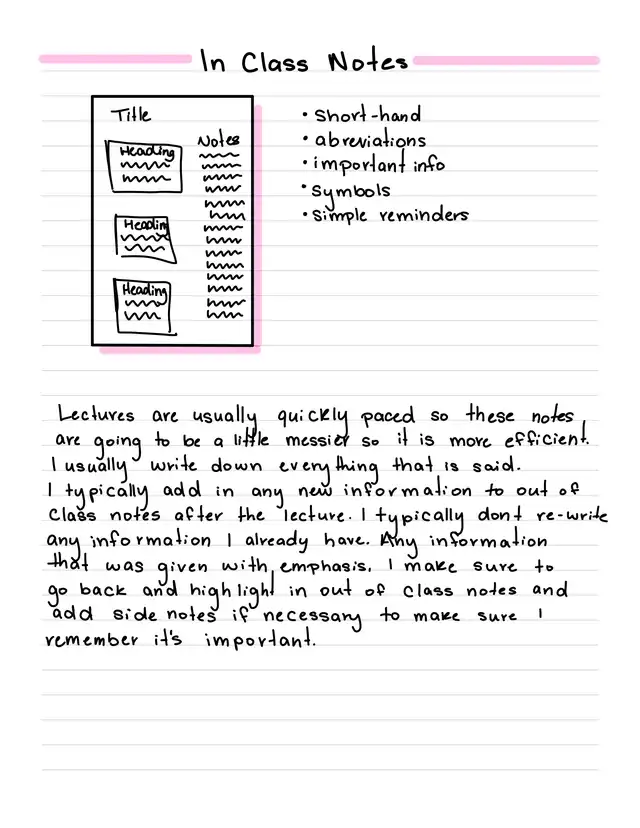 In Class Notes
Title
Heading
Heading
Heading
Notes
• short-hand
• abreviations
• important info
• symbols
• simple reminders
Lectures are usually quickly paced so these notes
are going to be a little messier so it is more efficient.
I usually write down everything that is said.
I typically add in any new information to out of
class notes after the lecture. I typically dont re-write
any information I already have. Any information
that was given with emphasis, I make sure to
go back and highlight in out of class notes and
add side notes if necessary to make sure I
remember it's important.